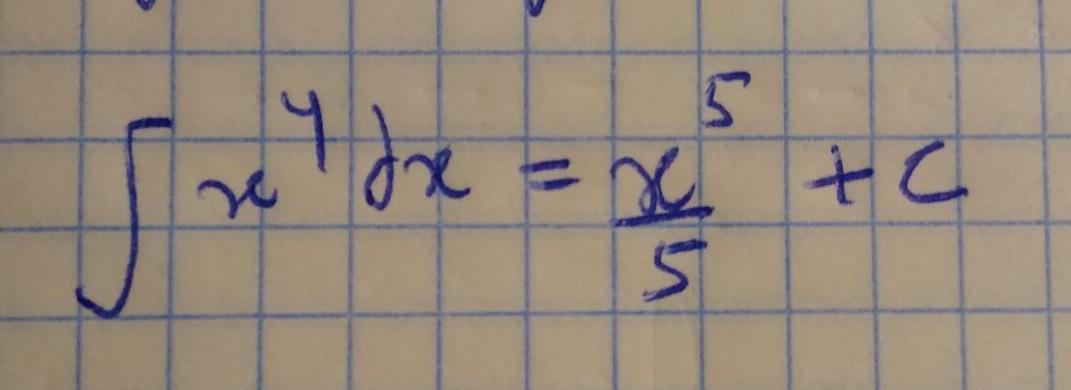 ∫ x⁴ dx = x⁵/5 + c